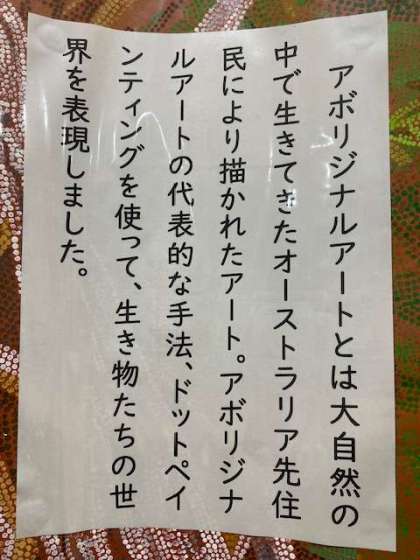 アボリジナルアートとは大自然の
中で生きてきたオーストラリア先住
民により描かれたアート。アボリジナ
ルアートの代表的な手法、ドットペイ
ンティングを使って、生き物たちの世
界を表現しました。